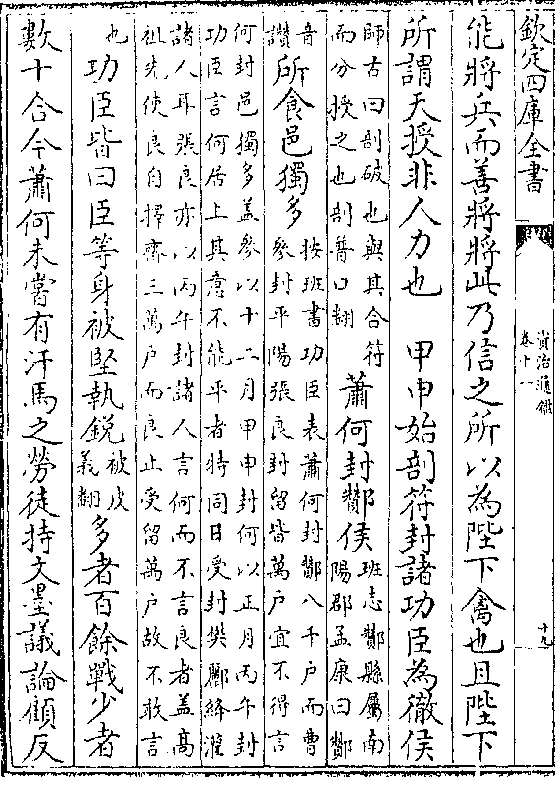 欽定四庫全書
資治通鑑
卷十一
十九
能將兵而善將將此乃信之所以為陛下禽也且陛下
所謂天授非人力也　甲申始剖符封諸功臣為徹侯
師古曰剖破也與其合符
而分授之也剖普口翻
蕭何封酇侯
班志酇縣屬南
陽郡孟康曰酇
音
讃
所食邑獨多
按班書功臣表蕭何封酇八千户而曹
參封平陽張良封留皆萬户宜不得言
何封邑獨多盖參以十二月甲申封何以正月丙午封
功臣言何居上其意不能平者特同日受封樊酈絳灌
諸人耳張良亦以丙午封諸人言何而不言良者盖高
祖先使良自擇齊三萬户而良止受留萬户故不敢言
也
功臣皆曰臣等身被堅執鋭
被皮
義翻
多者百餘戰少者
數十合今蕭何未嘗有汗馬之勞徒持文墨議論顧反